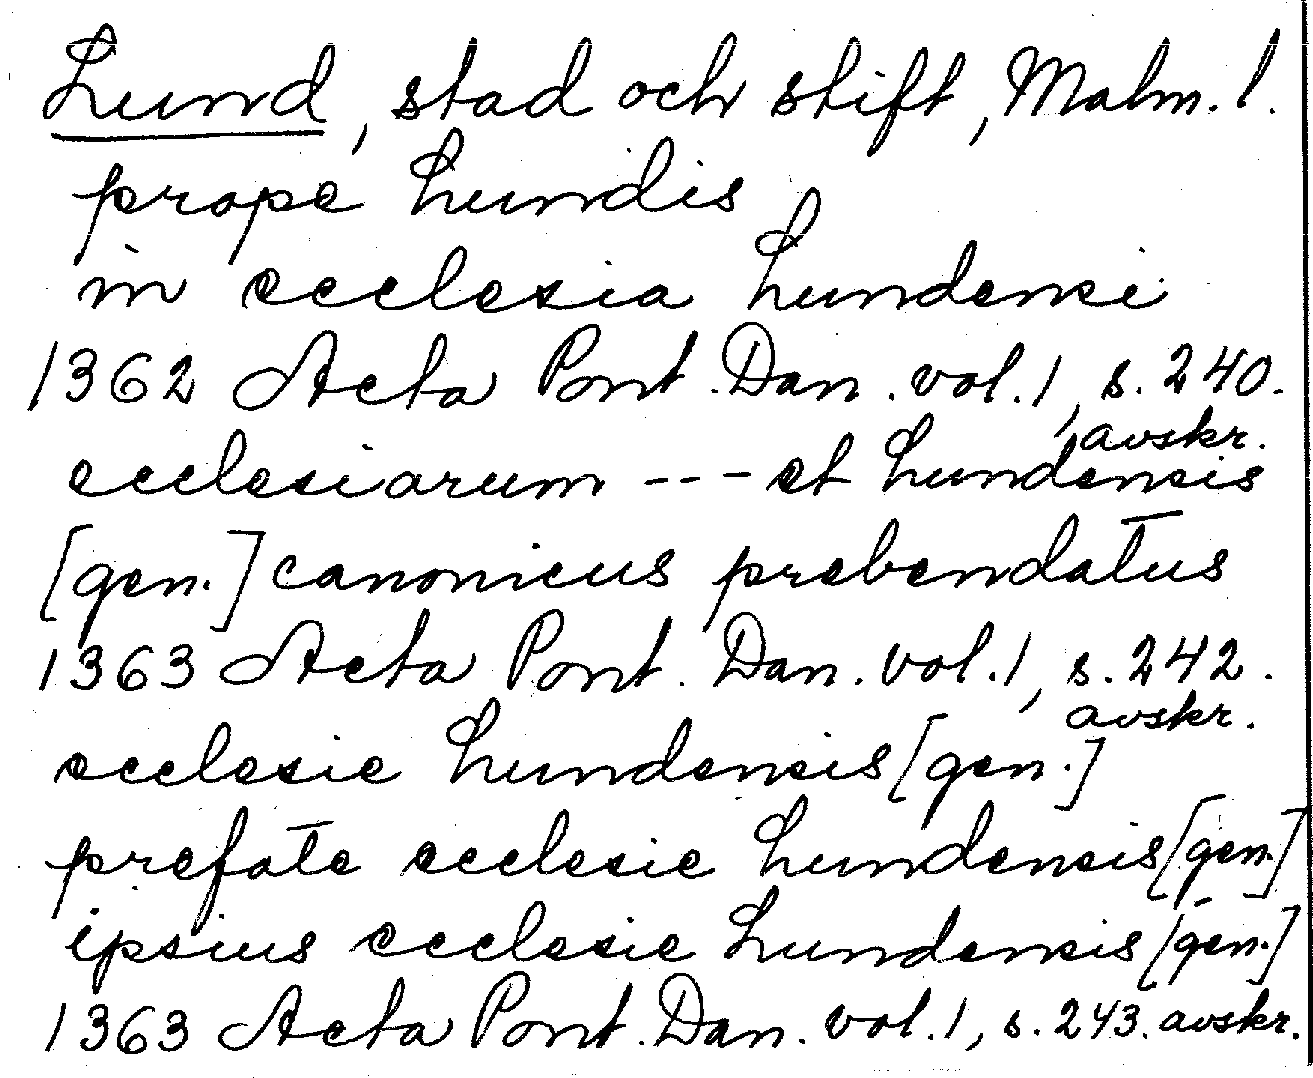 Lund, stad och stift, Malm. l.
prope Lundis
in ecclesia Lundensi
1362 Acta Pont. Dan. vol. 1, s. 240.
avskr.
ecclesiarum --- et Lundensis
[gen.] canonicus prebendatus
1363 Acta Pont. Dan. vol. 1, s. 242.
avskr.
ecclesie Lundensis [gen.]
prefate ecclesie Lundensis [gen.]
ipsius ecclesie Lundensis [gen.]
1363 Acta Pont. Dan. vol. 1, s. 243. avskr.